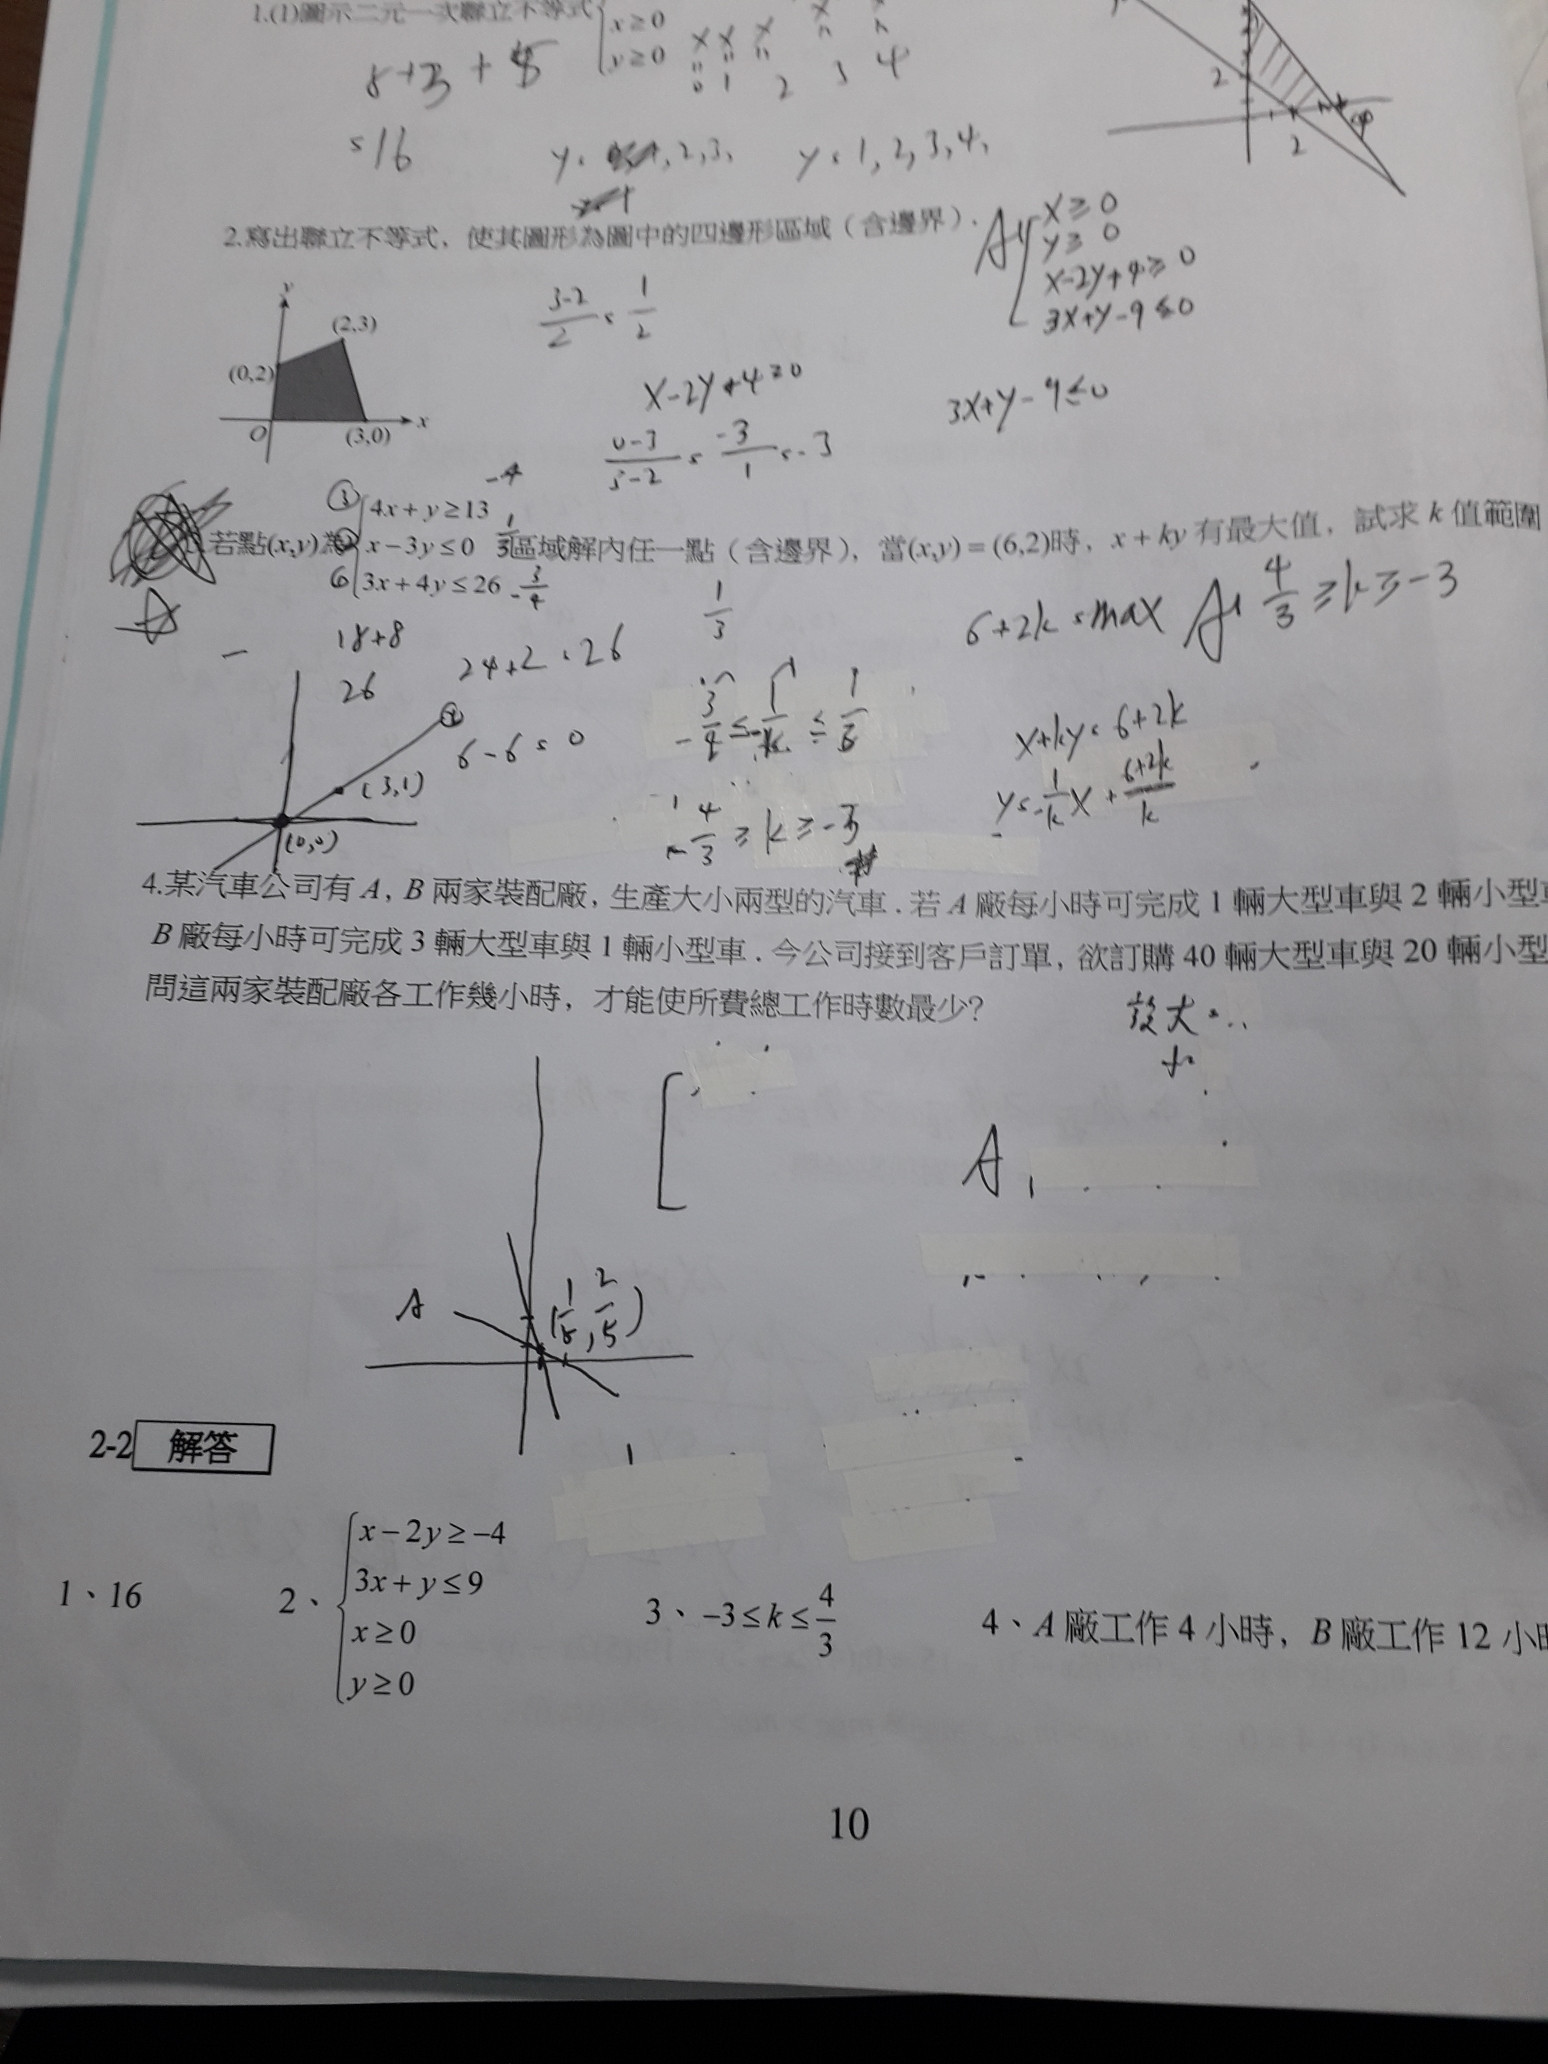 1.(1)圖示二元一次聯立不等式 { x≥0
y≥0
8+3+5
=16
0 1 2 3 4
y=2,3, y=1,2,3,4,
2
2
2.寫出聯立不等式，使其圖形為圖中的四邊形區域（含邊界）.
A: { x≥0
y≥0
x-2y+4≥0
3x+y-9≤0
y
(2,3)
(0,2)
O (3,0) x
3-2/2 = 1/2
x-2y+4≥0
3x+y-9≤0
0-3/3-2 = -3/1 = -3
③ 4x+y≥13 -4
若點(x,y)為 { x-3y≤0 1/3 區域解內任一點（含邊界），當(x,y)=(6,2)時，x+ky 有最大值，試求 k 值範圍
⑥ 3x+4y≤26 -3/4
18+8
26
24+2=26
6-6=0
1/3
6+2k=max A: 4/3≥k≥-3
-3/4≤-1/k≤1/3
4/3≥k≥-3
x+ky=6+2k
y=-1/k x+6+2k/k
(3,1)
(0,0)
4.某汽車公司有 A, B 兩家裝配廠，生產大小兩型的汽車．若 A 廠每小時可完成 1 輛大型車與 2 輛小型
B 廠每小時可完成 3 輛大型車與 1 輛小型車．今公司接到客戶訂單，欲訂購 40 輛大型車與 20 輛小型
問這兩家裝配廠各工作幾小時，才能使所費總工作時數最少？
A
A (1/5, 2/5)
2-2 解答
1、16
2、{ x-2y≥-4
3x+y≤9
x≥0
y≥0
3、-3≤k≤4/3
4、A 廠工作 4 小時，B 廠工作 12 小
10